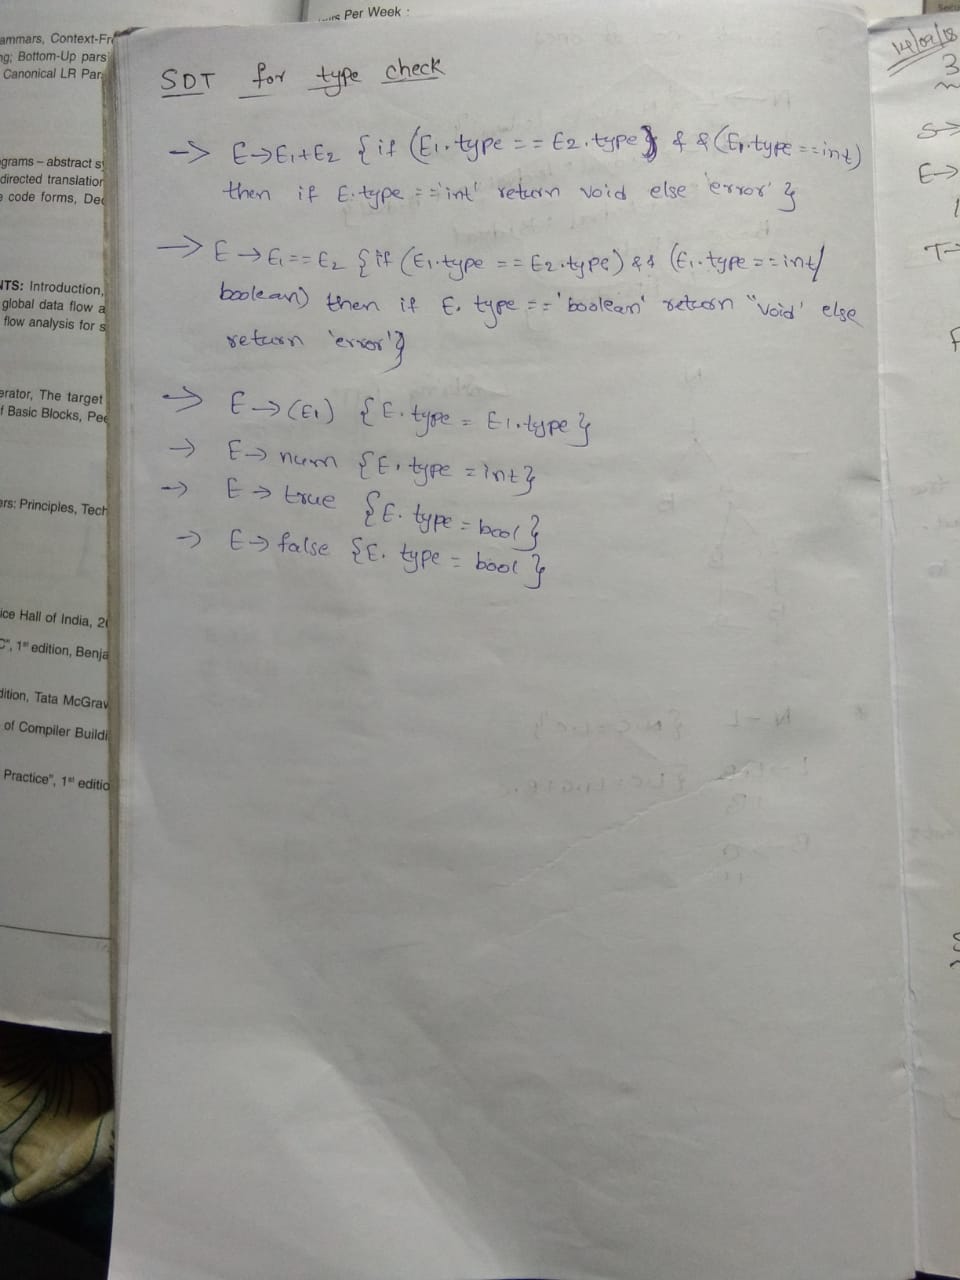 urs Per Week :
ammars, Context-Fr
ng; Bottom-Up pars
Canonical LR Par
grams – abstract sy
directed translation
e code forms, Dec
NTS: Introduction,
global data flow a
flow analysis for s
erator, The target
f Basic Blocks, Pee
ers: Principles, Tech
ice Hall of India, 20
C", 1st edition, Benja
dition, Tata McGraw
of Compiler Buildi
Practice", 1st editio
SDT for type check
→ E→E1+E2 {if (E1.type == E2.type) && (E1.type ==int)
then if E.type =='int' return void else 'error' }
→ E→E1==E2 {if (E1.type == E2.type) && (E1.type ==int/
boolean) then if E.type =='boolean' return "void' else
return 'error'}
→ E→(E1) {E.type = E1.type}
→ E→num {E.type =int}
→ E→true {E.type = bool}
→ E→false {E.type = bool}
14/09/18
3
S→
E→
T→
F